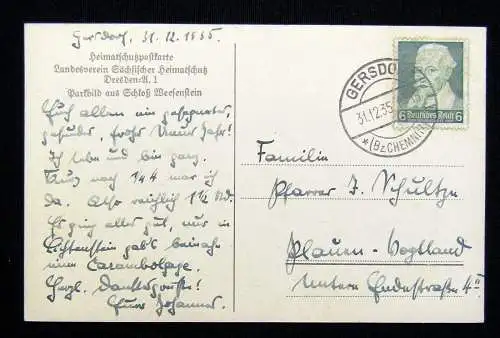 Gersdorf, 31.12.1935.
Heimatschutzpostkarte
Landesverein Sächsischer Heimatschutz
Dresden-A. 1
Parkbild aus Schloß Weesenstein
Euch allen ein gesegnetes,
gesundes, frohes Neues Jahr!
Ich lebe und bin ganz.
Kurz nach 1/4 4 war ich
da. Also reichlich 1 1/2 Std.
Es ging alles gut, nur in
Lichtenstein gab's beinahe
eine Carambolage.
Herzl. Dankesgrüße!
Euer Johannes.
GERSDORF
31.12.35
* (Bz. CHEMNITZ)
6 Deutsches Reich 6
Familie
Pfarrer J. Schultze
Plauen-Vogtland
Untere Endestraße 4 II